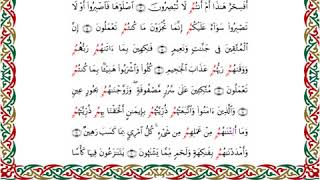 أَفَسِحْرٌ هَٰذَا أَمْ أَنتُمْ لَا تُبْصِرُونَ ۝ ٱصْلَوْهَا فَٱصْبِرُوٓا۟ أَوْ لَا
تَصْبِرُوا۟ سَوَآءٌ عَلَيْكُمْ إِنَّمَا تُجْزَوْنَ مَا كُنتُمْ تَعْمَلُونَ ۝ إِنَّ
ٱلْمُتَّقِينَ فِى جَنَّٰتٍ وَنَعِيمٍ ۝ فَٰكِهِينَ بِمَآ ءَاتَىٰهُمْ رَبُّهُمْ
وَوَقَىٰهُمْ رَبُّهُمْ عَذَابَ ٱلْجَحِيمِ ۝ كُلُوا۟ وَٱشْرَبُوا۟ هَنِيٓـًٔۢا بِمَا كُنتُمْ
تَعْمَلُونَ ۝ مُتَّكِـِٔينَ عَلَىٰ سُرُرٍ مَّصْفُوفَةٍ وَزَوَّجْنَٰهُم بِحُورٍ عِينٍ
۝ وَٱلَّذِينَ ءَامَنُوا۟ وَٱتَّبَعَتْهُمْ ذُرِّيَّتُهُم بِإِيمَٰنٍ أَلْحَقْنَا بِهِمْ ذُرِّيَّتَهُمْ
وَمَآ أَلَتْنَٰهُم مِّنْ عَمَلِهِم مِّن شَىْءٍ كُلُّ ٱمْرِئٍۭ بِمَا كَسَبَ رَهِينٌ ۝
وَأَمْدَدْنَٰهُم بِفَٰكِهَةٍ وَلَحْمٍ مِّمَّا يَشْتَهُونَ ۝ يَتَنَٰزَعُونَ فِيهَا كَأْسًا